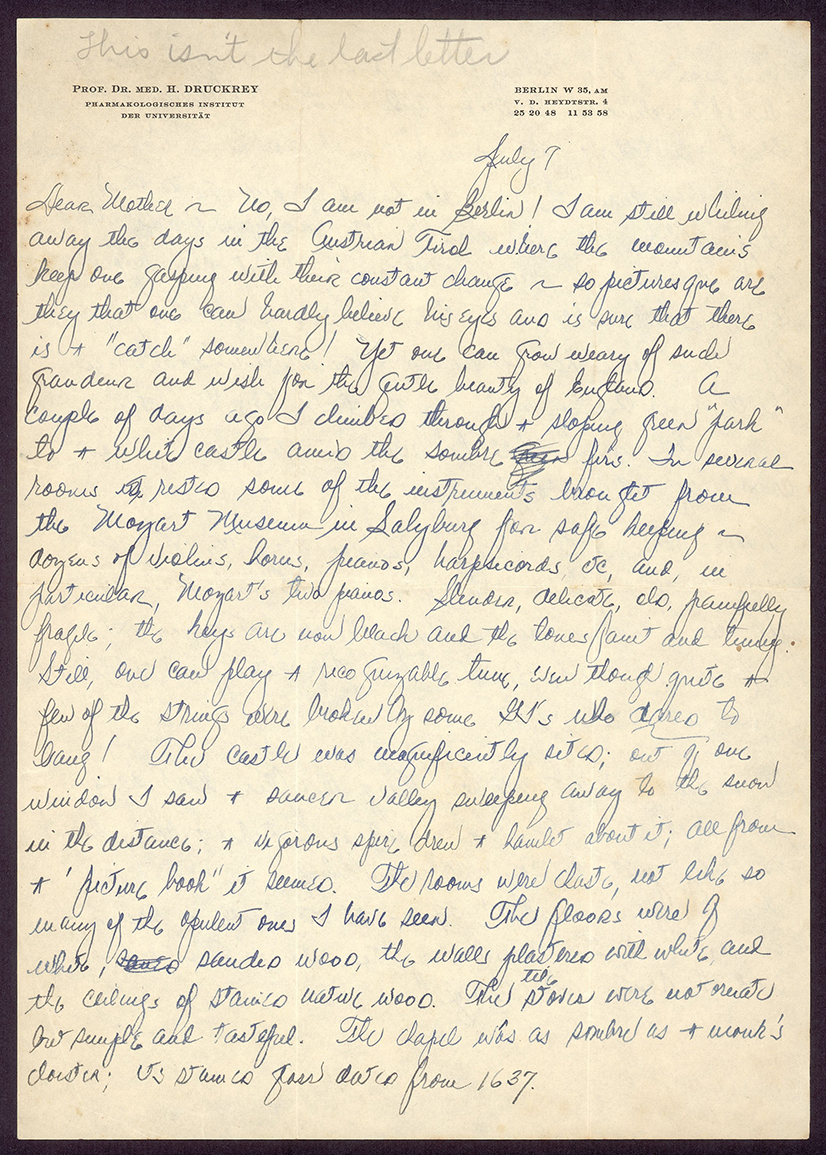 This isn't the last letter
PROF. DR. MED. H. DRUCKREY
PHARMAKOLOGISCHES INSTITUT
DER UNIVERSITÄT
BERLIN W 35, AM
V. D. HEYDTSTR. 4
25 20 48 11 53 58
July 7
Dear Mother ~ No, I am not in Berlin! I am still whiling
away the days in the Austrian Tirol where the mountains
keep one gasping with their constant change ~ so picturesque are
they that one can hardly believe his eyes and is sure that there
is a "catch" somewhere! Yet one can grow weary of such
grandeur and wish for the gentle beauty of England. A
couple of days ago I climbed through a sloping green "park"
to a white castle amid the sombre firs. In several
rooms rested some of the instruments brought from
the Mozart Museum in Salzburg for safe keeping ~
dozens of violins, horns, pianos, harpsicords, etc, and, in
particular, Mozart's two pianos. Slender, delicate, old, painfully
fragile; the keys are now black and the tones faint and tinny.
Still, one can play a recognizable tune, even though quite a
few of the strings were broken by some GI's who to
bang! The castle was magnificently sited; out of one
window I saw a saucer valley sweeping away to the snow
in the distance; a vigorous spire drew a hamlet about it; all from
a "picture book" it seemed. The rooms were chaste, not like so
many of the opulent ones I have seen. The floors were of
white, sanded wood, the walls plastered with white, and
the ceilings of stained native wood. The tile stoves were not ornate
but simple and tasteful. The chapel was as sombre as a monk's
cloister; its stained glass dated from 1637.